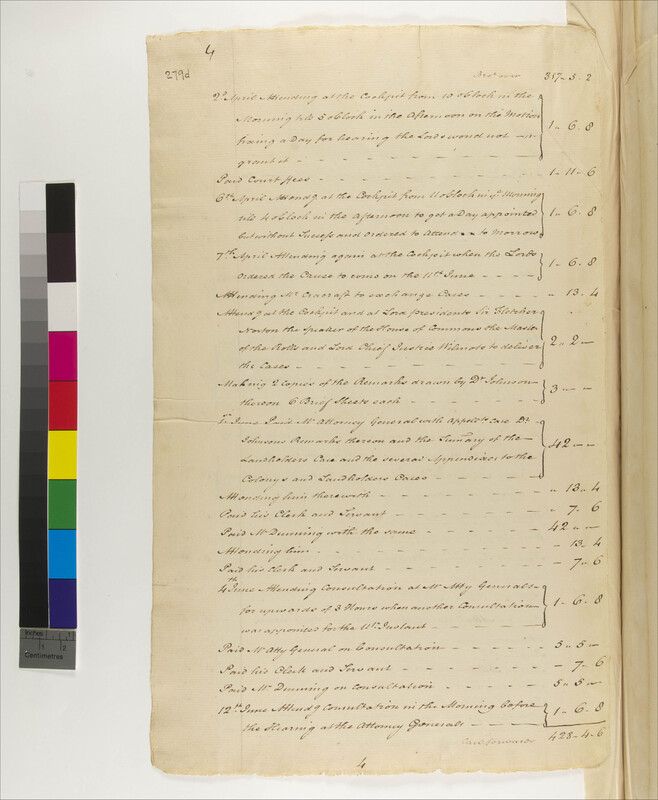 4
279d
Bro.t over 317 - 5 - 2
2.d April Attending at the Cockpit from 10 oClock in the
Morning till 5 oClock in the Afternoon on the Motion
fixing a Day for hearing the Lords would not
grant it - - - 1 - 6 - 8
Paid Court ffees - - - 1 - 11 - 6
6.th April Attend.g at the Cockpit from 11 oClock in y.e Morning
till 4 oClock in the Afternoon to get a Day appointed
but without Success and ordered to Attend to Morrow 1 - 6 - 8
7.th April Attending again at the Cockpit when the Lords
Ordered the Cause to come on the 11.th June - - - - 1 - 6 - 8
Attending M.r Cracraft to exchange Cases - - - " 13 - 4
Attend.g at the Cockpit and at Lord presidents Sir Fletcher
Norton the Speaker of the House of Commons the Master
of the Rolls and Lord Chief Justice Wilmots to deliver
the Cases - - - 2 - 2 -
Making 2 Copies of the Remarks drawn by D.r Johnson
thereon 6 Brief Sheets each - - - 3 - -
June Paid M.r Attorney General with Appel.ts Case D.r
Johnsons Remarks thereon and the Sum̄ary of the
Landholders Case and the several Appendixes to the
Colonys and Landholders Cases - - - 42 - -
Attending him therewith - - - " 13 - 4
Paid his Clerk and Servant - - - " 7 - 6
Paid M.r Dunning with the same - - - 42 " -
Attending him - - - " 13 - 4
Paid his Clerk and Servant - - - " 7 - 6
4.th June Attending Consultation at M.r Atty Generals
for upwards of 3 Hours when another Consultation
was appointed for the Instant - - - 1 - 6 - 8
Paid M.r Atty General on Consultation - - - 5 - 5 -
Paid his Clerk and Servant - - - 7 - 6
Paid M.r Dunning on Consultation - - - 5 - 5 -
12.th June Attend.g Consultation in the Morning before
the Hearing at the Attorney Generals - - - 1 - 6 - 8
Car.d forward 428 - 4 - 6
4
Inches 1 2
Centimetres